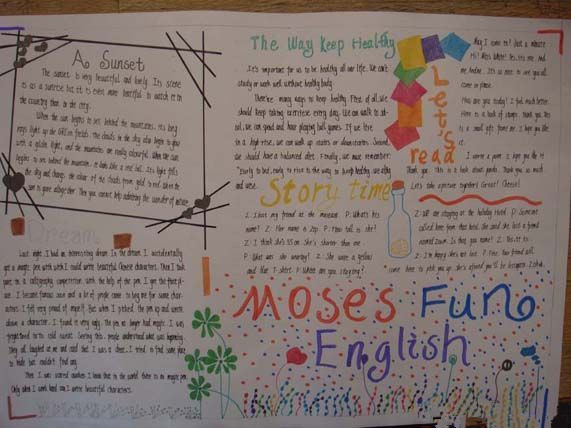 A Sunset
The sunset is very beautiful and lovely. Its scene
is as a sunrise but it is even more beautiful to watch it in
the country than in the city.
When the sun begins to set behind the mountains, its long
rays light up the fields. The clouds in the sky also begin to glow
with a golden light, and the mountains are really colourful. When the sun
begins to set behind the mountain, it looks like a red ball. Its light fills
the sky and changes the colour of the clouds from gold to red. When the
sun is gone altogether. Then you cannot help admiring the wonder of nature.
Dream
Last night, I had an interesting dream. In the dream, I accidentally
got a magic pen with which I could write beautiful Chinese characters. Then I took
part in a calligraphy competition with the help of the pen. I got the first
I became famous soon and a lot of people came to beg me for some
characters. I felt very proud of myself. But when I picked the pen up and wrote
down a character. I found it very ugly. The pen no longer had magic. I was
frightened into cold sweat. Seeing this people understood what was happening.
They all laughed at me and said that I was a I tried to find some place
to hide but couldn't find any.
Then I was scared awake. I know that in the world there is no magic pen.
Only when I work hard can I write beautiful characters.
The Way Keep Healthy
It's important for us to be healthy all our life. We can't
study or work well without healthy body.
There're many ways to keep healthy. First of all, we
should keep taking exercise every day. We can walk to
school, we can good and hour playing ball games. If we live
in a high-rise, we can walk up stairs or downstairs. Second,
we should have a balanced diet. Finally, we must remember
"Early to bed, early to rise is the way to keep healthy, wealthy
and wise."
Story time
Z: I lost my friend at the museum. P: What's his
name? Z: Her name is Zop. P: How tall is she?
Z: I think she's 55 cm. She's shorter than me.
P: What was she wearing? Z: She wore a yellow
and blue T-shirt. P: Where are you staying?
Let's
read
May I come in? Just a minute
Hi! Miss White! Yes, it's me and
me Andre. It's so nice to see you all
come in please.
How are you today? I feel much better.
Here is a book of stamp. thank you. this
is a small gift from me. I hope you like
it.
I wrote a poem. I hope you like it
Thank you. This is a book about pandas. Thank you so much
Let's take a picture together! Great! Cheese!
Z: We are staying at the holiday Hotel. P: Someone
called here from that hotel. She said she lost a friend
named Zoom. Is that you name? Z: Yes, it is.
Z: I'm happy she's not lost. P: Fine. Your friend will
come here to pick you up.
Moses Fun
English